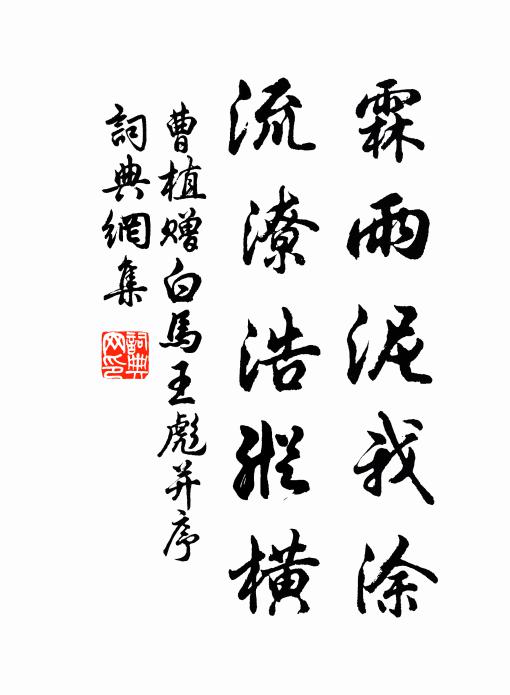 霖雨泥我涂
流潦浩縱橫
曹植赠白馬王彪并序
詞典網集
詞典
网印